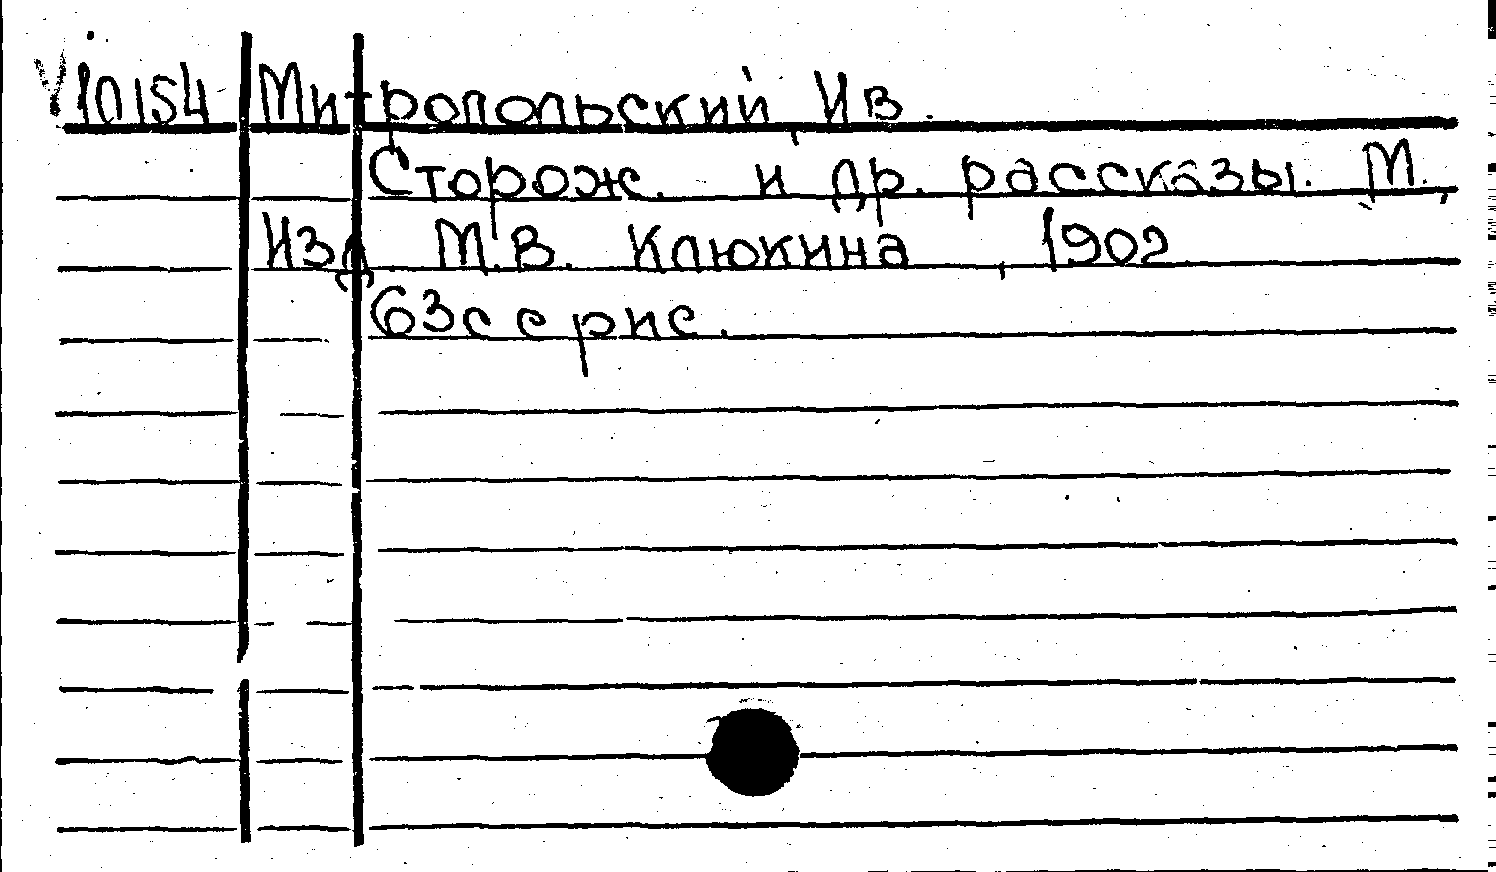 V10154 Митропольский, Ив.
Сторож. и др. рассказы. М.,
Изд. М.В. Клюкина, 1902
63с с рис.